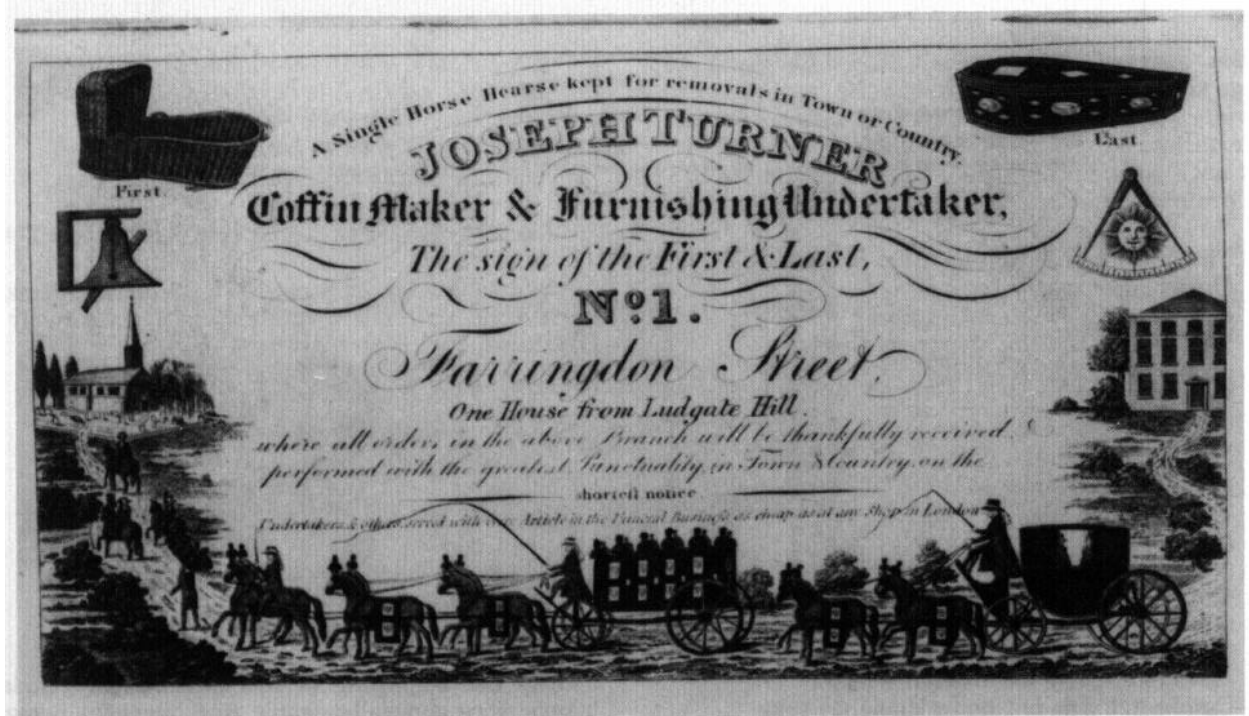 A Single Horse Hearse kept for removals in Town or Country.
JOSEPH TURNER
Coffin Maker & Furnishing Undertaker,
The sign of the First & Last,
No. 1.
Farringdon Street,
One House from Ludgate Hill.
where all orders in the above Branch will be thankfully received, &
performed with the greatest Punctuality, in Town & Country, on the
shortest notice
Undertakers & others served with every Article in the Funeral Business as cheap as at any Shop in London
First.
Last